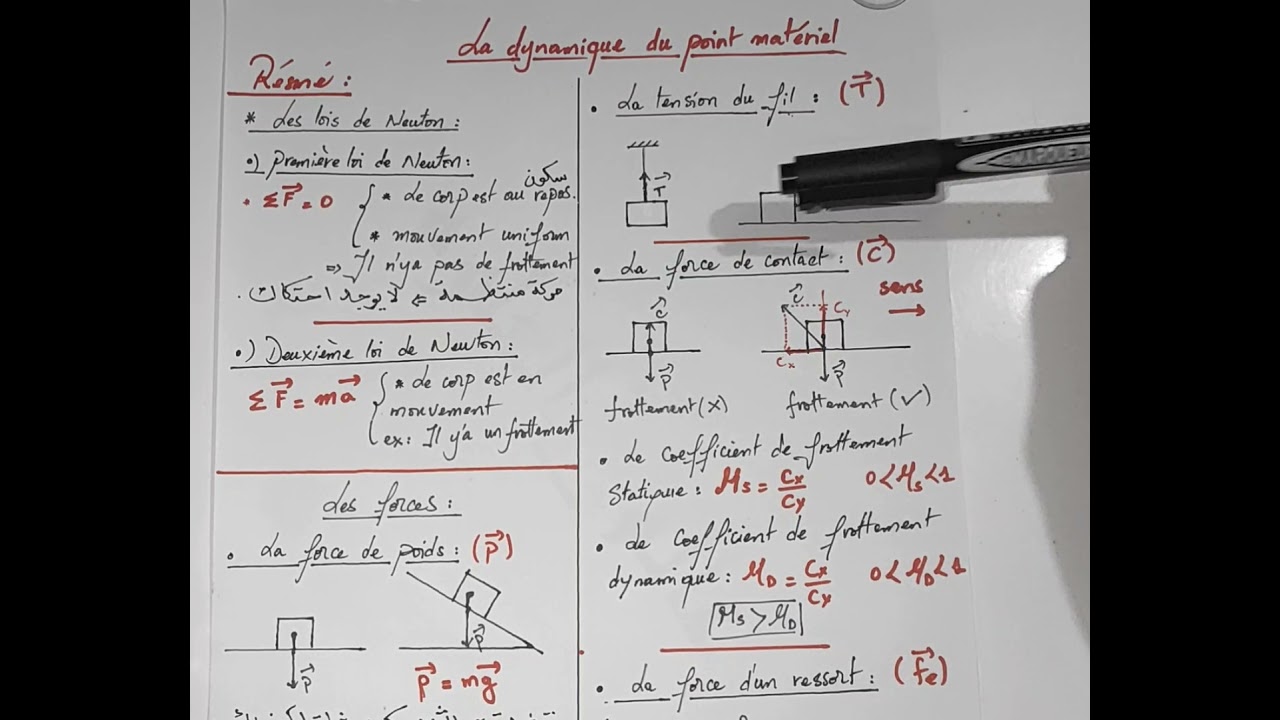 La dynamique du point matériel
Résmé :
* Les lois de Newton :
•) Première loi de Newton :
• ΣF⃗ = 0
* Le corp est au repos. سكون
* mouvement uniform
⇒ Il n'ya pas de frottement
حركة منتظمة ⇐ لا يوجد احتكاك .
•) Deuxième loi de Newton :
ΣF⃗ = ma⃗
* Le corp est en
mouvement
ex : Il y'a un frottement
Les forces :
• La force de poids : (P⃗)
P⃗
P⃗
P⃗ = mg⃗
• La tension du fil : (T⃗)
T⃗
• La force de contact : (C⃗)
C⃗
P⃗
frottement (x)
C⃗
Cy
Cx
P⃗
sens
frottement (✓)
• Le coefficient de frottement
Statique : μs = Cx/Cy 0 < μs < 1
• Le coefficient de frottement
dynamique : μD = Cx/Cy 0 < μD < 1
μs > μD
• La force d'un ressort : (Fe⃗)